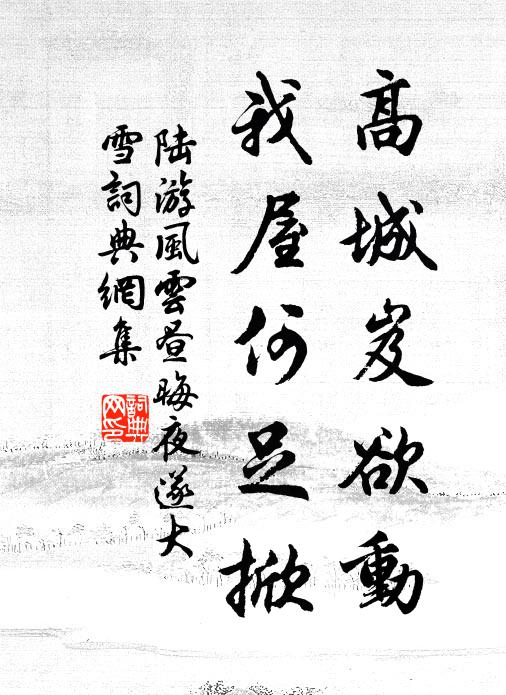 高城岌欲動
我屋何足掀
陸游風雲晝晦夜遂大
雪詞典網集
詞典
网印